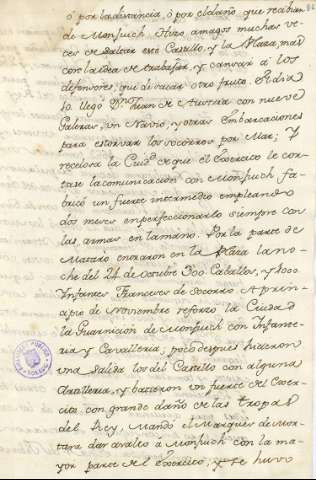 ó por la distancia, ó por el daño, que recibian
de Monjuich. Hizo amagos muchas ve-
ces de asaltar este Castillo, y la Plaza, mas
con la idea de trabajar, y cansar á los
defensores, que de sacar otro fruto. El dia
10. llegó Dn. Juan de Austria con nueve
Galeras, un Navio, y otras Embarcaciones
para estorvar los socorros por Mar; Y
recelosa la Ciudad de que el Exercito le cor-
tase la comunicacion con Monjuich fa-
bricó un fuerte intermedio empleando
dos meses en perfeccionarlo siempre con
las armas en la mano. Por la parte de
Mataró entraron en la Plaza la no-
che del 24 de Octubre 300 Caballos, y 1000
Infantes Franceses de socorro. A prin-
cipio de Noviembre reforzó la Ciudad
la Guarnicion de Monjuich con Infante-
ria y Cavalleria; poco despues hicieron
una salida los del Castillo con alguna
Artilleria, y batieron un fuerte del Exer-
cito con grande daño de las tropas
del Rey. Mandó el Marqués de Morta-
ra dar asalto á Monjuich con la ma-
yor parte del Exercito; y se huvo